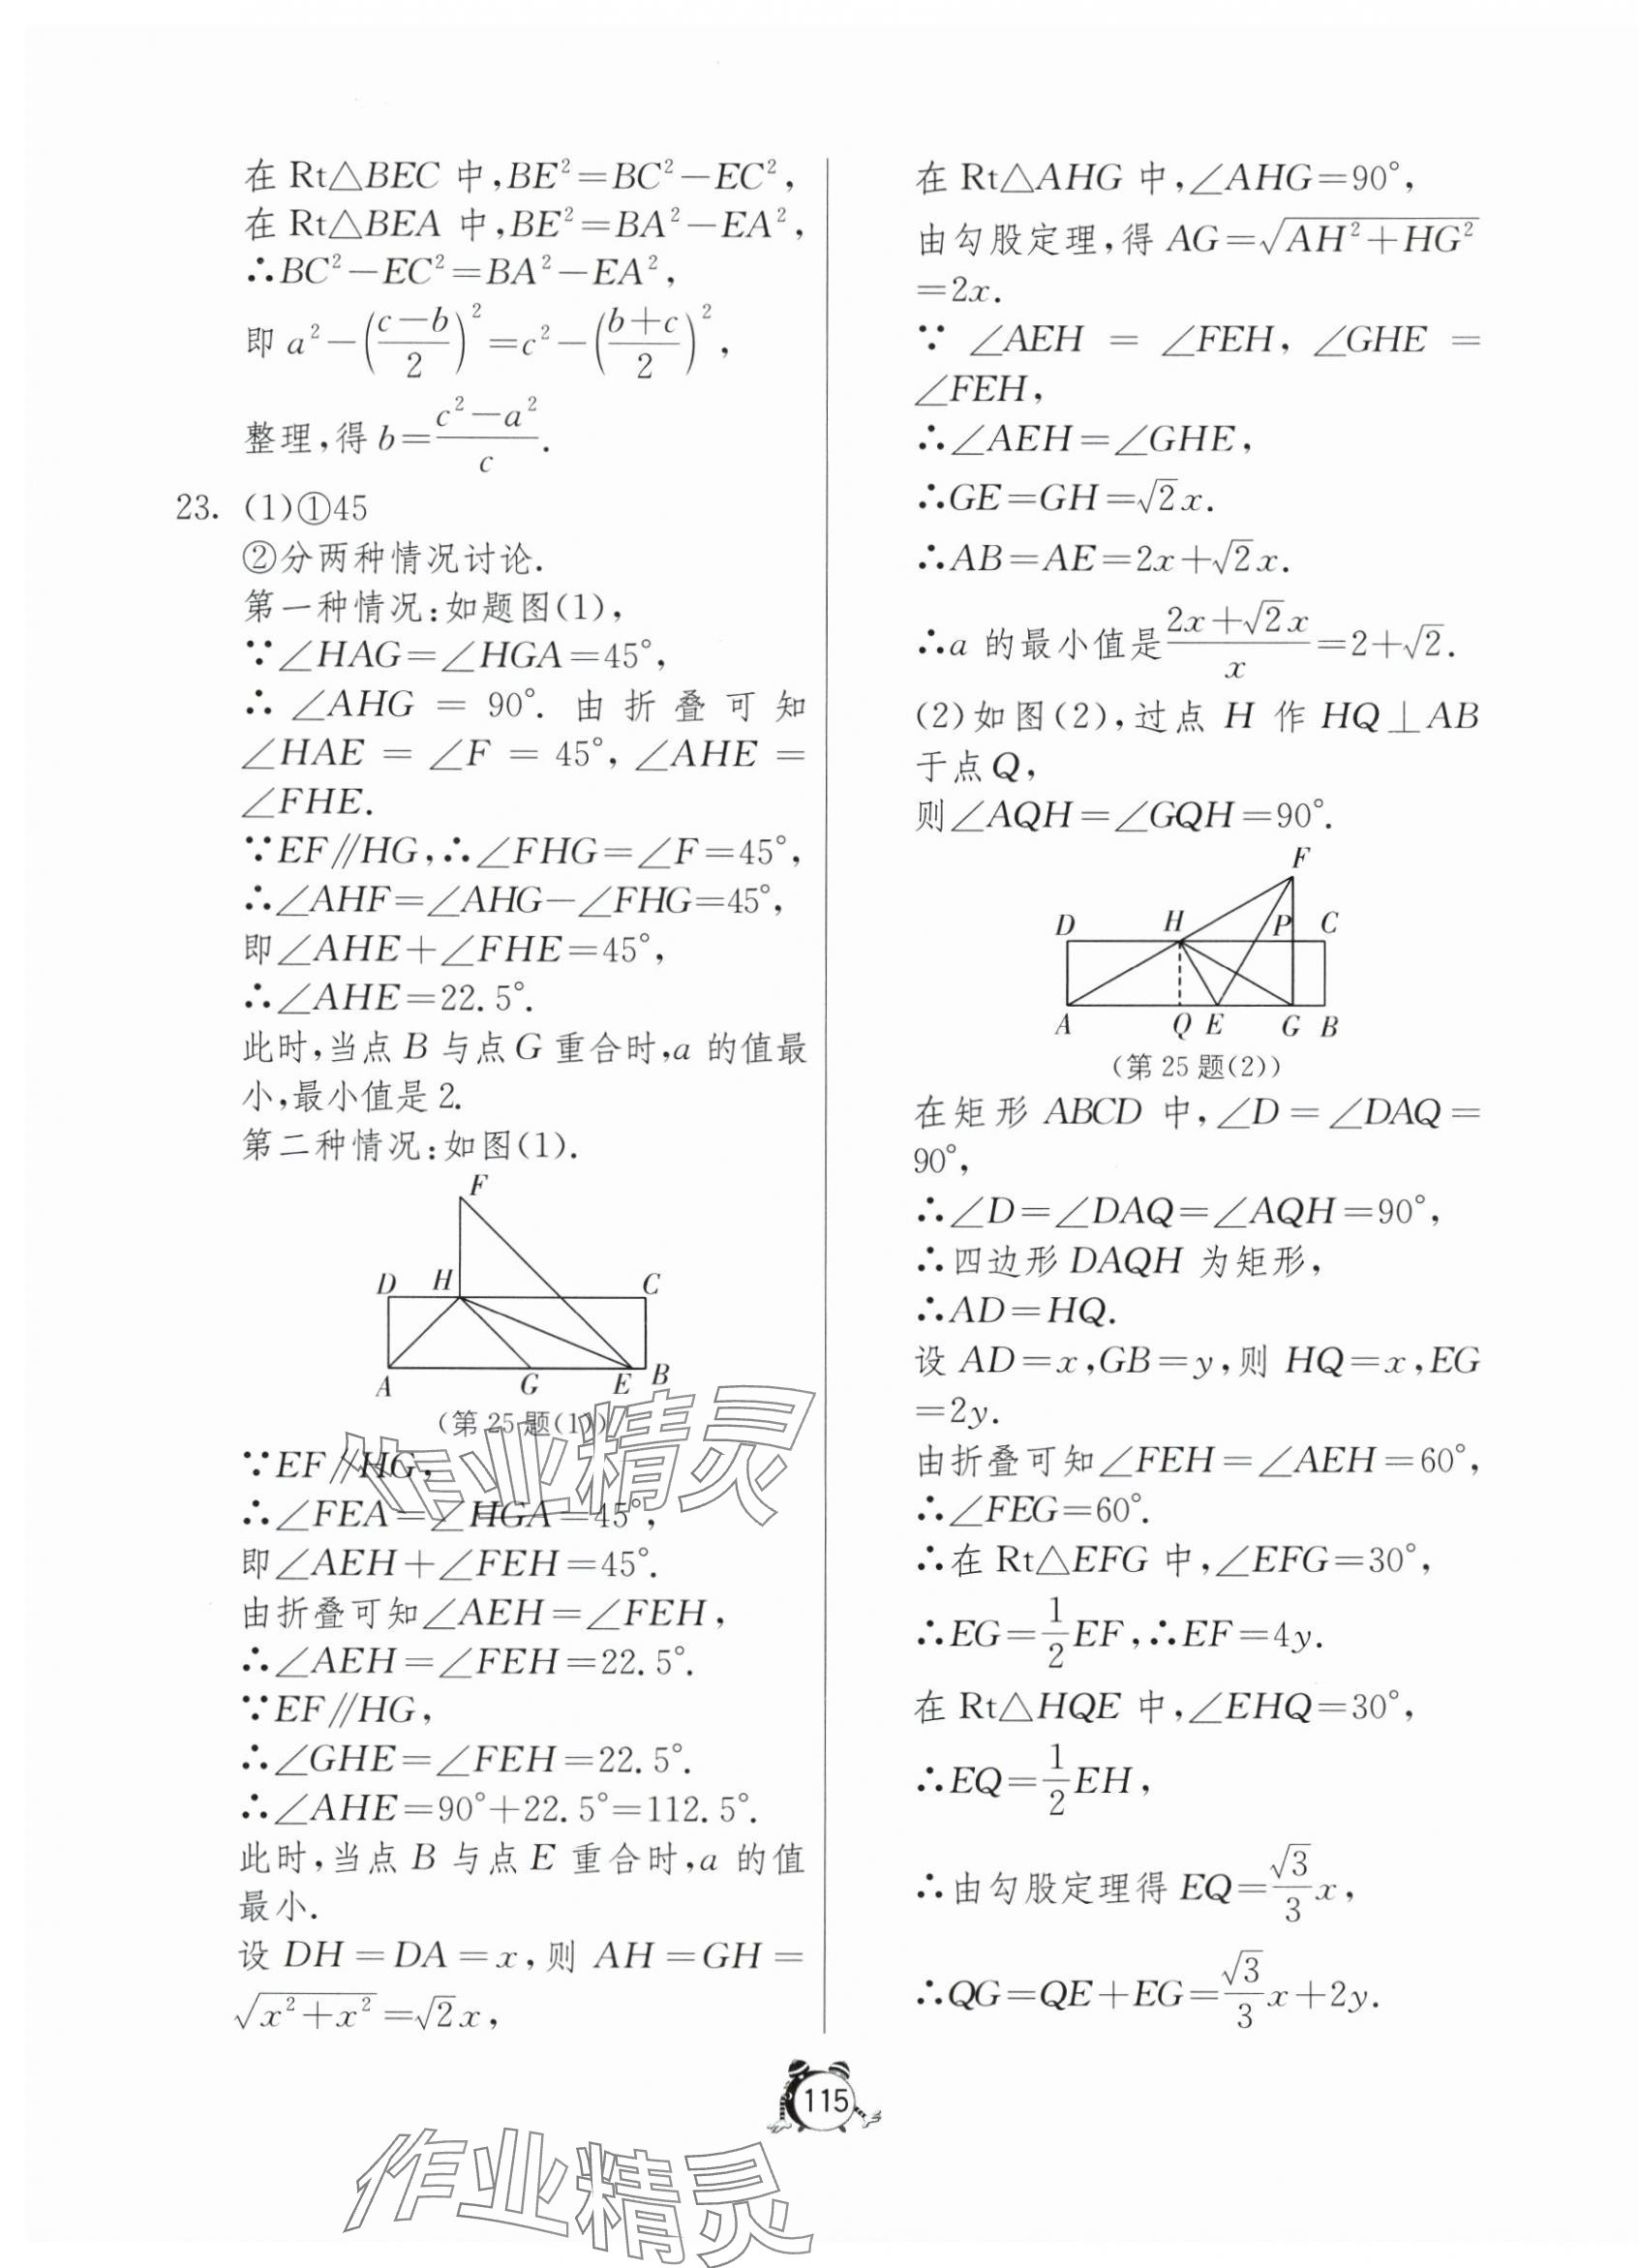 在 Rt△BEC 中,BE²=BC²-EC²,
在 Rt△BEA 中,BE²=BA²-EA²,
∴BC²-EC²=BA²-EA²,
即 a²-((c-b)/2)²=c²-((b+c)/2)²,
整理,得 b=(c²-a²)/c.
23. (1)①45
②分两种情况讨论.
第一种情况:如题图(1),
∵∠HAG=∠HGA=45°,
∴∠AHG = 90°. 由折叠可知
∠HAE = ∠F = 45°, ∠AHE =
∠FHE.
∵EF∥HG,∴∠FHG=∠F=45°,
∴∠AHF=∠AHG-∠FHG=45°,
即∠AHE+∠FHE=45°,
∴∠AHE=22.5°.
此时,当点 B 与点 G 重合时,a 的值最
小,最小值是 2.
第二种情况:如图(1).
F
D H C
A G E B
(第 25 题(1))
∵EF∥HG,
∴∠FEA=∠HGA=45°,
即∠AEH+∠FEH=45°.
由折叠可知∠AEH=∠FEH,
∴∠AEH=∠FEH=22.5°.
∵EF∥HG,
∴∠GHE=∠FEH=22.5°.
∴∠AHE=90°+22.5°=112.5°.
此时,当点 B 与点 E 重合时,a 的值
最小.
设 DH=DA=x,则 AH=GH=
√(x²+x²)=√2x,
在 Rt△AHG 中,∠AHG=90°,
由勾股定理,得 AG=√(AH²+HG²)
=2x.
∵ ∠AEH = ∠FEH, ∠GHE =
∠FEH,
∴∠AEH=∠GHE,
∴GE=GH=√2x.
∴AB=AE=2x+√2x.
∴a 的最小值是(2x+√2x)/x=2+√2.
(2)如图(2),过点 H 作 HQ⊥AB
于点 Q,
则∠AQH=∠GQH=90°.
F
D H P C
A Q E G B
(第 25 题(2))
在矩形 ABCD 中,∠D=∠DAQ=
90°,
∴∠D=∠DAQ=∠AQH=90°,
∴四边形 DAQH 为矩形,
∴AD=HQ.
设 AD=x,GB=y,则 HQ=x,EG
=2y.
由折叠可知∠FEH=∠AEH=60°,
∴∠FEG=60°.
∴在 Rt△EFG 中,∠EFG=30°,
∴EG=1/2EF,∴EF=4y.
在 Rt△HQE 中,∠EHQ=30°,
∴EQ=1/2EH,
∴由勾股定理得 EQ=√3/3x,
∴QG=QE+EG=√3/3x+2y.
115
作业精灵
作业精灵